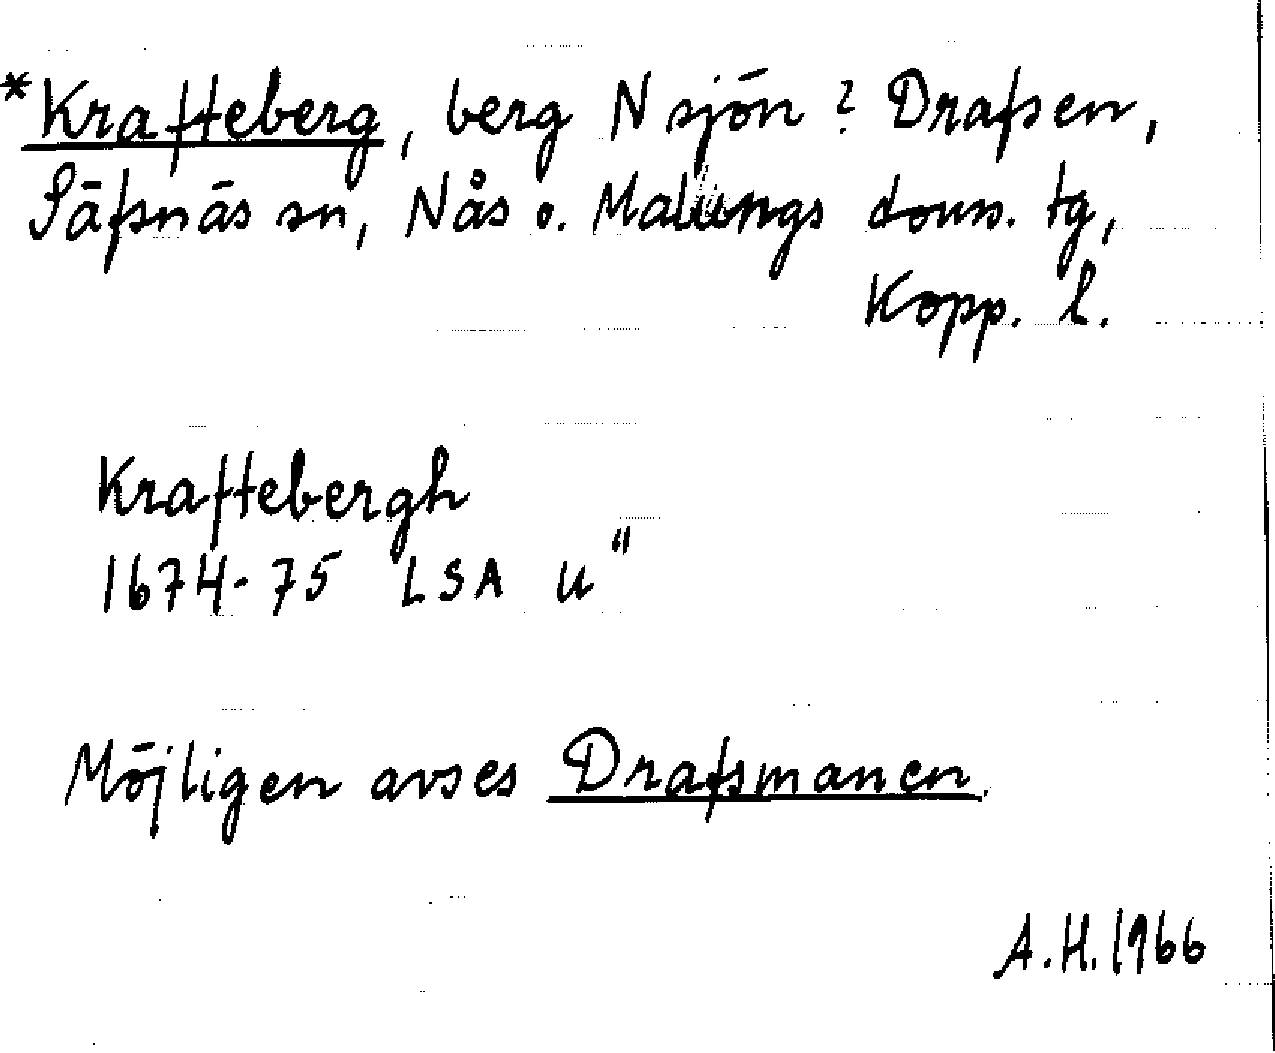 *Krafteberg, berg N sjön ? Drafsen,
Säfsnäs sn, Nås o. Malungs doms. tg,
Kopp. l.
Kraftebergh
1674-75 LSA U"
Möjligen avses Drafsmanen.
A.H. 1966